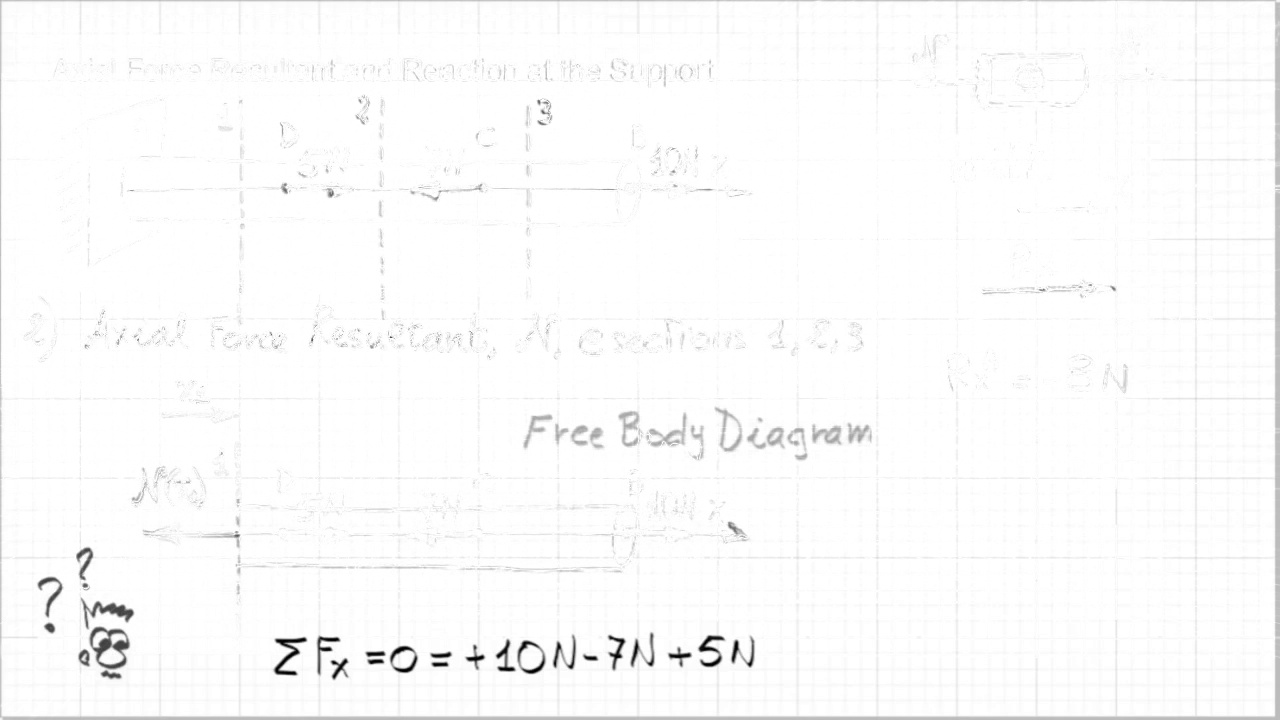 Axial Force Resultant and Reaction at the Support
1 2 3
D C B
5N 7N 10N x
2) Axial Force Resultant, N, @ sections 1, 2, 3
Free Body Diagram
1
D B
5N 7N 10N x
? ?
ΣFx = 0 = +10N - 7N + 5N